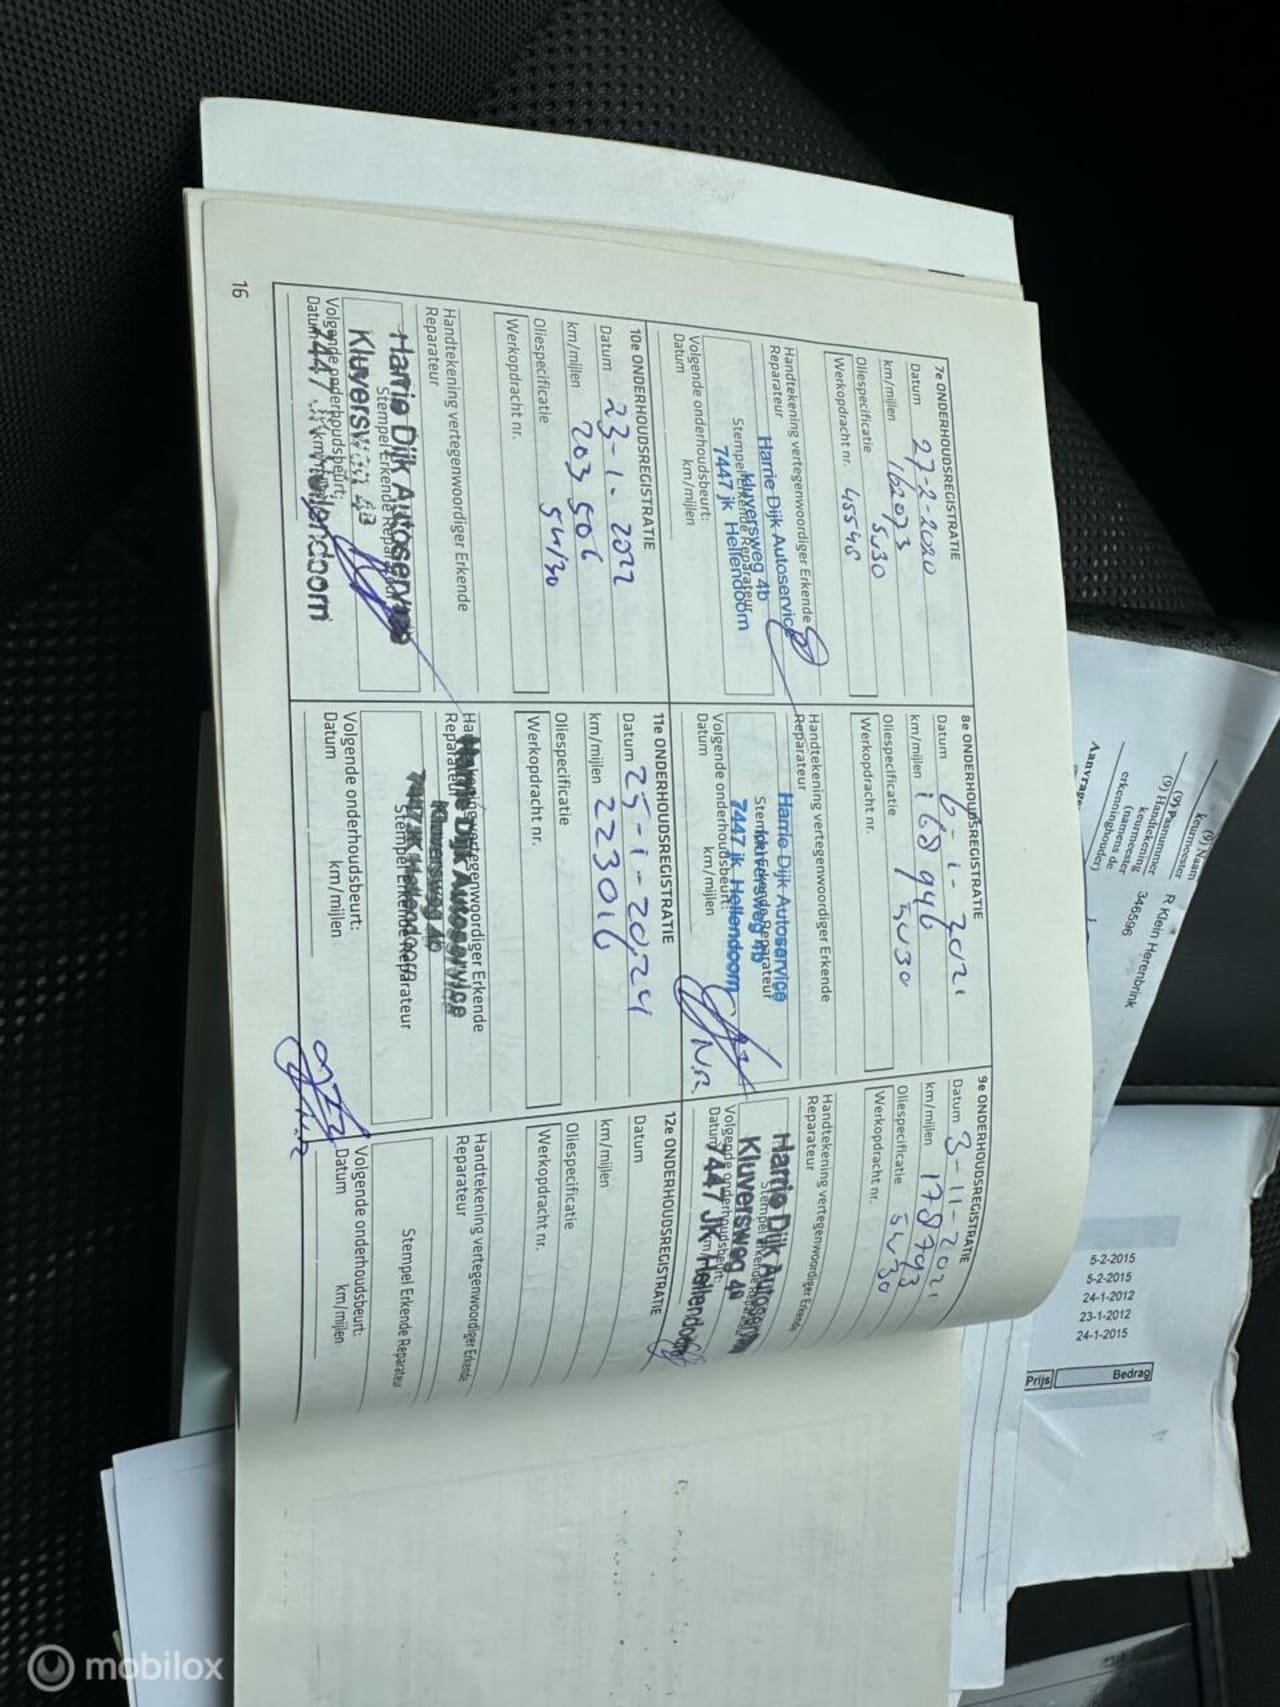 7e ONDERHOUDSREGISTRATIE
Datum 27-2-2020
km/mijlen 162073
Oliespecificatie 5w30
Werkopdracht nr. 45548
Handtekening vertegenwoordiger Erkende
Reparateur
Harrie Dijk Autoservice
Kluversweg 4b
Stempel Erkende Reparateur
7447 jk Hellendoorn
Volgende onderhoudsbeurt:
Datum km/mijlen
8e ONDERHOUDSREGISTRATIE
Datum 6-1-2021
km/mijlen 168946
Oliespecificatie 5w30
Werkopdracht nr.
Handtekening vertegenwoordiger Erkende
Reparateur
Harrie Dijk Autoservice
Stempel Erkende Reparateur
Kluversweg 4b
7447 jk Hellendoorn
Volgende onderhoudsbeurt:
Datum km/mijlen
N.R.
9e ONDERHOUDSREGISTRATIE
Datum 3-11-2021
km/mijlen 178793
Oliespecificatie 5w30
Werkopdracht nr.
Handtekening vertegenwoordiger Erkende
Reparateur
Harrie Dijk Autoservice
Stempel Erkende Reparateur
Kluversweg 4b
Volgende onderhoudsbeurt:
Datum km/mijlen
7447 JK Hellendoorn
10e ONDERHOUDSREGISTRATIE
Datum 23-1-2022
km/mijlen 203506
Oliespecificatie 5w30
Werkopdracht nr.
Handtekening vertegenwoordiger Erkende
Reparateur
Harrie Dijk Autoservice
Stempel Erkende Reparateur
Kluversweg 4b
Volgende onderhoudsbeurt:
Datum km/mijlen
7447 JK Hellendoorn
11e ONDERHOUDSREGISTRATIE
Datum 25-1-2024
km/mijlen 223016
Oliespecificatie
Werkopdracht nr.
Handtekening vertegenwoordiger Erkende
Reparateur
Harrie Dijk Autoservice
Kluversweg 4b
7447 JK Hellendoorn
Stempel Erkende Reparateur
Volgende onderhoudsbeurt:
Datum km/mijlen
12e ONDERHOUDSREGISTRATIE
Datum
km/mijlen
Oliespecificatie
Werkopdracht nr.
Handtekening vertegenwoordiger Erkende
Reparateur
Stempel Erkende Reparateur
Volgende onderhoudsbeurt:
Datum km/mijlen
16
(9) Naam
keurmeester R Klein Herenbrink
(9) Pasnummer 346596
(9) Handtekening
keurmeester
(namens de
erkenninghouder)
Aanvrage
5-2-2015
5-2-2015
24-1-2012
23-1-2012
24-1-2015
Prijs Bedrag
mobilox